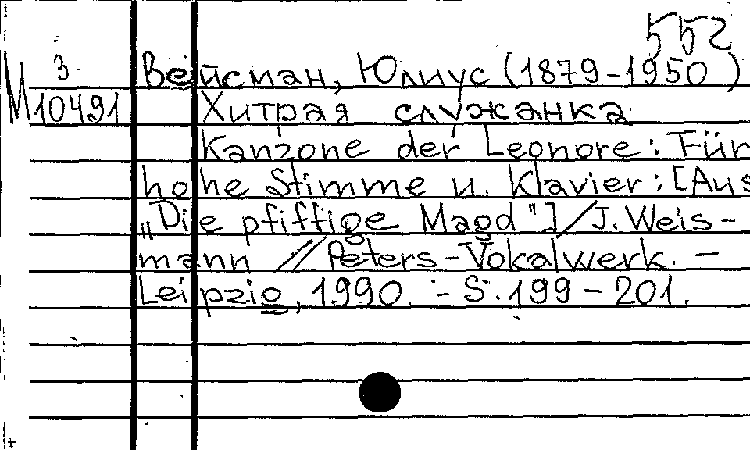 552
3 Вейсман, Юлиус (1879-1950)
М10491 Хитрая служанка
Kanzone der Leonore: Für
hohe Stimme u. Klavier: [Aus
„Die pfiffige Magd"] / J. Weis-
mann // Peters-Vokalwerk. -
Leipzig, 1990. - S. 199-201.